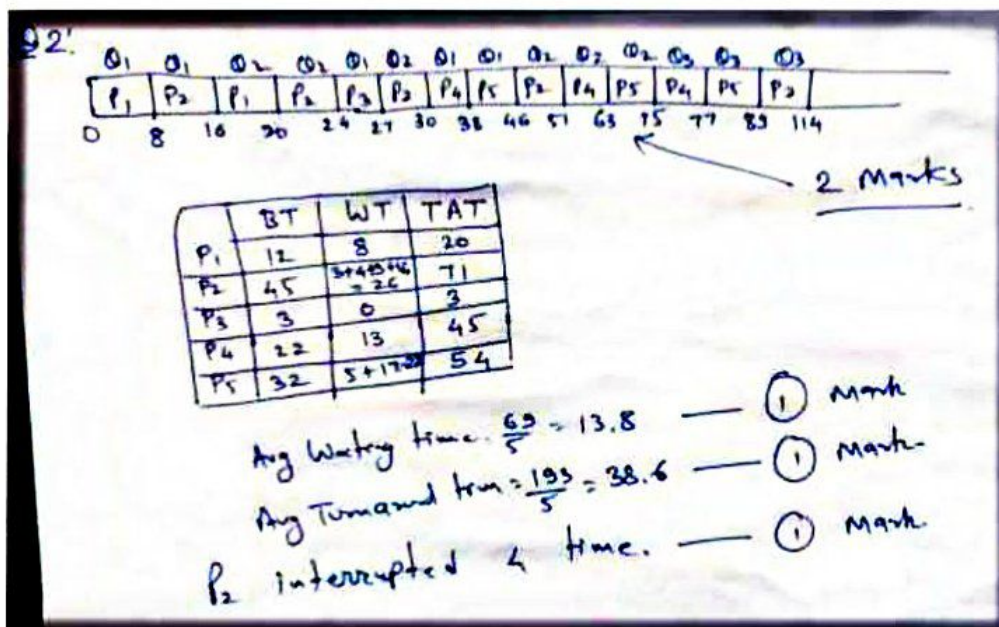 Q2'
Q1 Q1 Q2 Q2 Q1 Q2 Q1 Q1 Q2 Q2 Q2 Q3 Q3 Q3
P1 P2 P1 P2 P3 P2 P4 P5 P2 P4 P5 P4 P5 P2
0 8 16 20 24 27 30 38 46 51 63 75 77 89 114
2 Marks
BT WT TAT
P1 12 8 20
P2 45 = 26 71
P3 3 0 3
P4 22 13 45
P5 32 54
Avg Waiting time. 69/5 = 13.8 — 1 Mark
Avg Turnaround = 193/5 = 38.6 — 1 Mark
P2 interrupted 4 time. — 1 Mark.